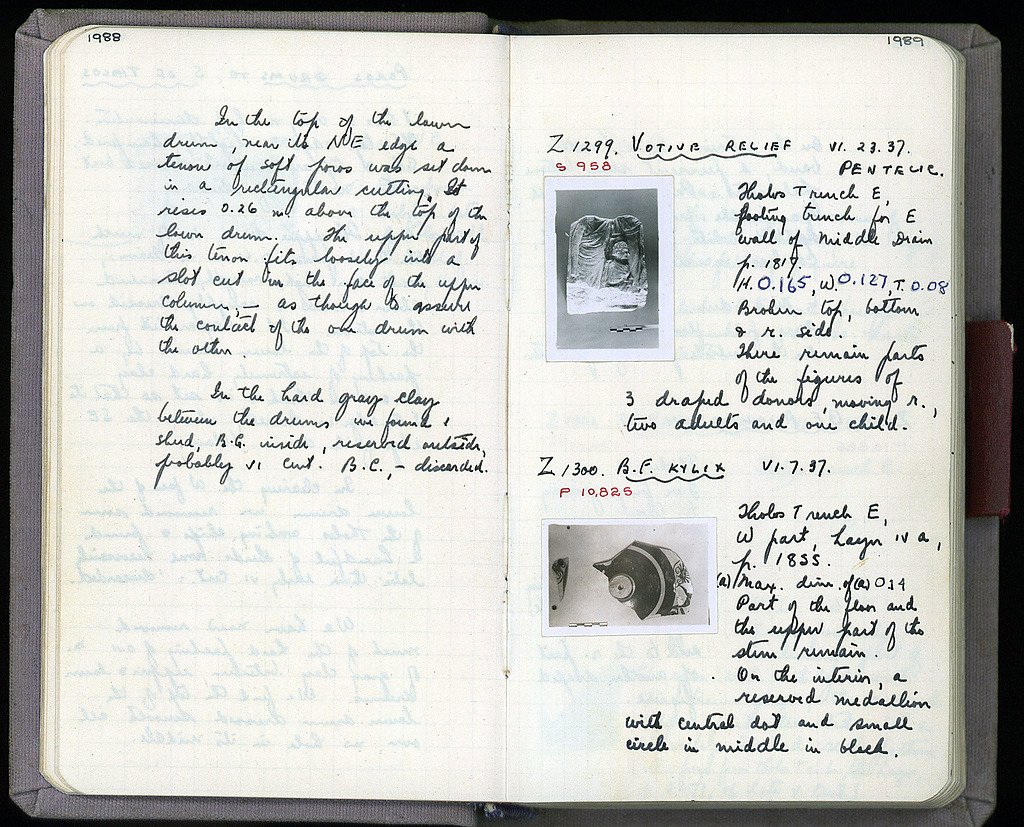 1988
In the top of the lower
drum, near its NE edge a
tenon of soft poros was set down
in a rectangular cutting. It
rises 0.26 m. above the top of the
lower drum. The upper part of
this tenon fits loosely into a
slot cut in the face of the upper
column, — as though to assure
the contact of the one drum with
the other
In the hard gray clay
between the drums we found 1
sherd, B.G. inside, reserved outside,
probably VI cent. B.C., — discarded.
1989
Z 1299. VOTIVE RELIEF VI. 23. 37.
S 958
PENTELIC.
Tholos Trench E,
footing trench for E
wall of Middle Drain
p. 1817.
H. 0.165, W. 0.127, T. 0.08
Broken top, bottom
& r. side.
There remain parts
of the figures of
3 draped donors moving r.,
two adults and one child.
Z 1300. B.F. KYLIX VI. 7. 37.
P 10,825
Tholos Trench E,
W part, Layer IV a,
p. 1855.
(a) Max. dim. of (a) 0.14
Part of the floor and
the upper part of the
stem remain.
On the interior, a
reserved medallion
with central dot and small
circle in middle in black.